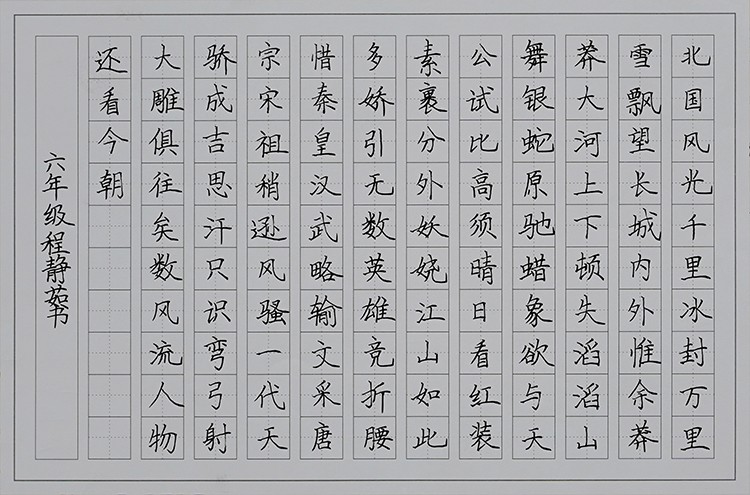 北国风光千里冰封万里
雪飘望长城内外惟余莽
莽大河上下顿失滔滔山
舞银蛇原驰蜡象欲与天
公试比高须晴日看红装
素裹分外妖娆江山如此
多娇引无数英雄竞折腰
惜秦皇汉武略输文采唐
宗宋祖稍逊风骚一代天
骄成吉思汗只识弯弓射
大雕俱往矣数风流人物
还看今朝
六年级程静茹书